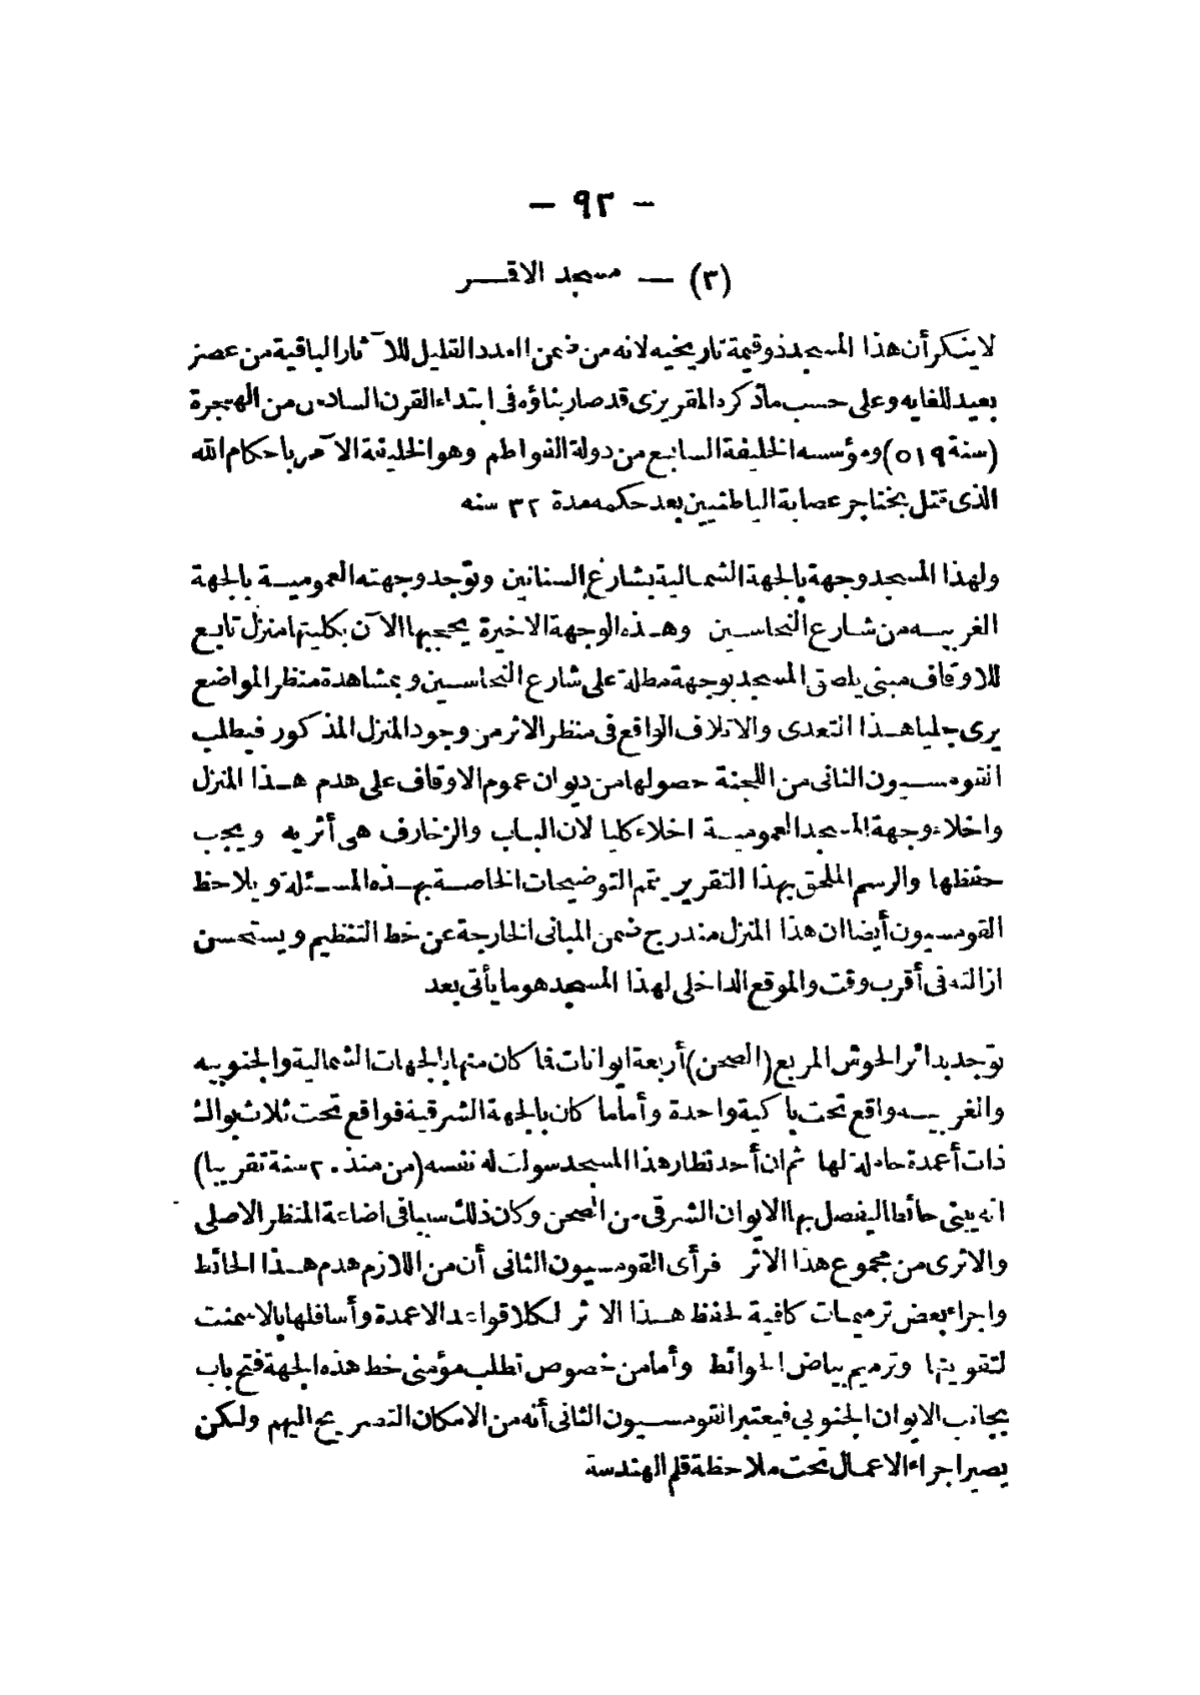 - ٩٢ -
(٣) — مسجد الاقـــر
لاينكر أن هذا المسجد ذو قيمة تاريخيه لانه من ضمن العدد القليل للآثار الباقية من عصر
بعيد للغايه وعلى حسب ماذكره المقريزى قد صار بناؤه فى ابتداء القرن السادس من الهجرة
(سنة ٥١٩) ومؤسسه الخليفة السابع من دولة الفواطم وهو الخليفة الآمر باحكام الله
الذى قتل بخناجر عصابة الباطنيين بعد حكمه مدة ٣٢ سنه
ولهذا المسجد وجهة بالجهة الشمالية بشارع السنانين وتوجد وجهته العمومية بالجهة
الغربيه من شارع النحاسين وهذه الوجهة الاخيرة يحجبها الآن بكليتها منزل تابع
للاوقاف مبنى يلصق المسجد بوجهة مطلة على شارع النحاسين وبمشاهدة منظر المواضع
يرى جليا هذا التعدى والاتلاف الواقع فى منظر الاثر من وجود المنزل المذكور فيطلب
القومسيون الثانى من اللجنة حصولها من ديوان عموم الاوقاف على هدم هذا المنزل
واخلاء وجهة المسجد العمومية اخلاء كليا لان الباب والزخارف هى أثريه ويجب
حفظها والرسم الملحق بهذا التقرير يتمم التوضيحات الخاصة بهذه المسئلة ويلاحظ
القومسيون أيضا ان هذا المنزل مندرج ضمن المبانى الخارجة عن خط التنظيم ويستحسن
ازالته فى أقرب وقت والموقع الداخلى لهذا المسجد هو ما يأتى بعد
توجد بدائر الحوش المربع (الصحن) أربعة ايوانات فما كان منها بالجهات الشمالية والجنوبيه
والغربيه واقع تحت باكية واحدة وأما ما كان بالجهة الشرقية فواقع تحت ثلاث بوائك
ذات أعمدة حاملة لها ثم ان أحد نظار هذا المسجد سولت له نفسه (من منذ ٢٠ سنة تقريبا)
انه يبنى حائطا ليفصل بها الايوان الشرقى من الصحن وكان ذلك سببا فى اضاعة المنظر الاصلى
والاثرى من مجموع هذا الاثر فرأى القومسيون الثانى أن من اللازم هدم هذا الحائط
واجراء بعض ترميمات كافية لحفظ هذا الاثر لكلا قواعد الاعمدة وأسافلها بالاسمنت
لتقويتها وترميم بياض الحوائط وأما من خصوص تطلب مؤمنى خط هذه الجهة فتح باب
بجانب الايوان الجنوبى فيعتبر القومسيون الثانى أنه من الامكان التصريح اليهم ولكن
يصير اجراء الاعمال تحت ملاحظة قلم الهندسة